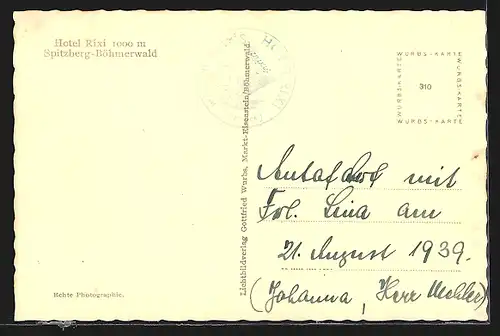 Hotel Rixi 1000 m
Spitzberg-Böhmerwald
WURBS-KARTE
WURBS-KARTE
310
WURBS-KARTE
WURBS-KARTE
Lichtbildverlag Gottfried Wurbs, Markt-Eisenstein/Böhmerwald.
mit
Frl. Lina am
21. August 1939.
(Johanna, Herr Mehler)
Echte Photographie.